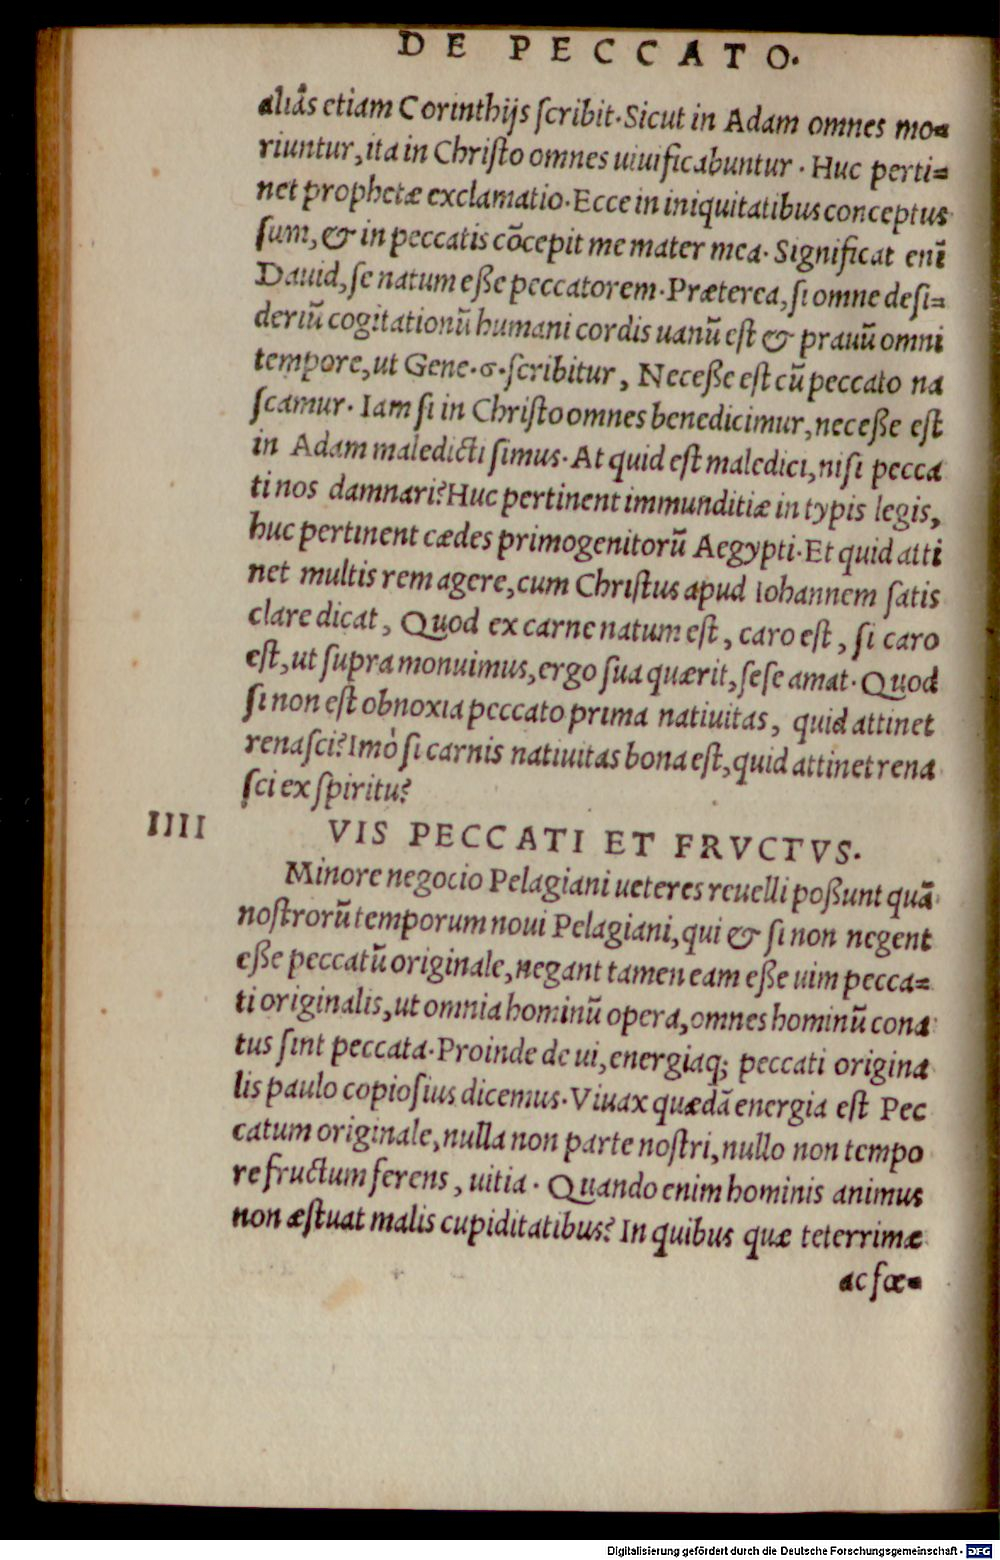 DE PECCATO.
aliâs etiam Corinthijs ſcribit. Sicut in Adam omnes mo=
riuntur, ita in Chriſto omnes uiuificabuntur. Huc perti=
net prophetæ exclamatio. Ecce in iniquitatibus conceptus
ſum, & in peccatis cõcepit me mater mea. Significat enĩ
Dauid, ſe natum eſſe peccatorem. Præterea, ſi omne deſi=
deriũ cogitationũ humani cordis uanũ eſt & prauũ omni
tempore, ut Gene. 6. ſcribitur, Neceſſe eſt cũ peccato na
ſcamur. Iam ſi in Chriſto omnes benedicimur, neceſſe eſt
in Adam maledicti ſimus. At quid eſt maledici, niſi pecca
ti nos damnari? Huc pertinent immunditiæ in typis legis,
huc pertinent cædes primogenitorũ Aegypti. Et quid atti
net multis rem agere, cum Chriſtus apud Iohannem ſatis
clare dicat, Quod ex carne natum eſt, caro eſt, ſi caro
eſt, ut ſupra monuimus, ergo ſua quærit, ſeſe amat. Quod
ſi non eſt obnoxia peccato prima natiuitas, quid attinet
renaſci? Imò ſi carnis natiuitas bona eſt, quid attinet rena
ſci ex ſpiritu?
IIII VIS PECCATI ET FRVCTVS.
Minore negocio Pelagiani ueteres reuelli poſſunt quã
noſtrorũ temporum noui Pelagiani, qui & ſi non negent
eſſe peccatũ originale, negant tamen eam eſſe uim pecca=
ti originalis, ut omnia hominũ opera, omnes hominũ cona
tus ſint peccata. Proinde de ui, energiaq; peccati origina
lis paulo copioſius dicemus. Viuax quædã energia eſt Pec
catum originale, nulla non parte noſtri, nullo non tempo
re fructum ferens, uitia. Quando enim hominis animus
non æſtuat malis cupiditatibus? In quibus quæ teterrimæ
ac fœ=
Digitalisierung gefördert durch die Deutsche Forschungsgemeinschaft - DFG